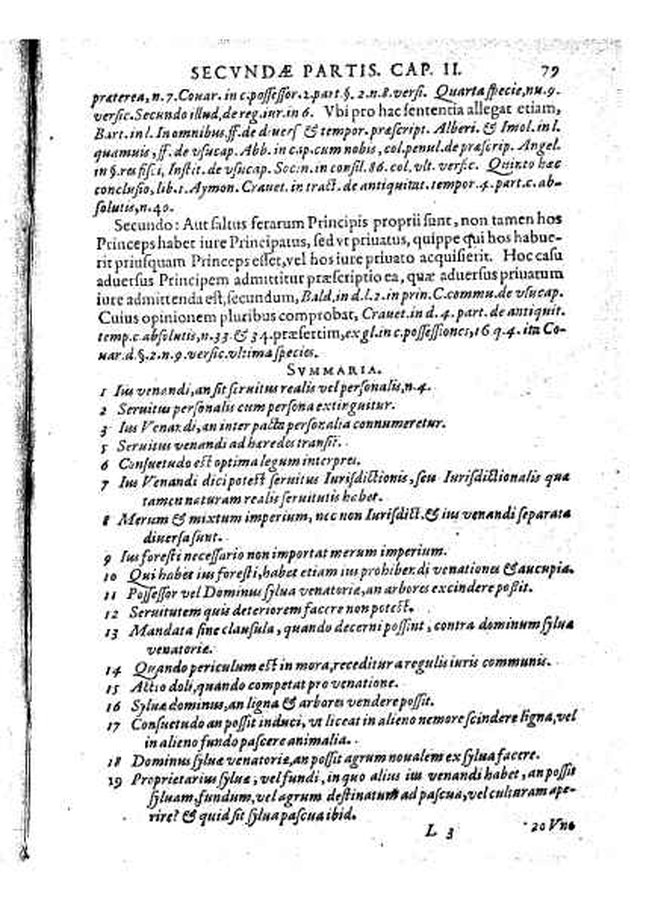 SECVNDÆ PARTIS. CAP. II. 79
præterea, n.7. Couar. in c. possessor. 2. part. §. 2. n.8. versi. Quarta specie, nu.9.
versic. Secundo illud, de reg. iur. in 6. Vbi pro hac sententia allegat etiam,
Bart. in l. In omnibus, ff. de diuers & tempor. præscript. Alberi. & Imol. in l.
quamuis, ff. de vsucap. Abb. in cap. cum nobis, col. penul. de præscrip. Angel.
in §. res fisci, Instit. de vsucap. Socin. in consil. 86. col. vlt. versic. Quinto hæc
conclusio, lib. 1. Aymon. Crauet. in tract. de antiquitat. tempor. 4. part. c. ab-
solutis, n.40.
Secundo: Aut saltus ferarum Principis proprii sunt, non tamen hos
Princeps habet iure Principatus, sed vt priuatus, quippe qui hos habue-
rit priusquam Princeps esset, vel hos iure priuato acquisierit. Hoc casu
aduersus Principem admittitur præscriptio ea, quæ aduersus priuatum
iure admittenda est, secundum, Bald. in d. l. 2. in prin. C. commu. de vsucap.
Cuius opinionem pluribus comprobat, Crauet. in d. 4. part. de antiquit.
temp. c. absolutis, n.33. & 34. præsertim, ex gl. in c. possessiones, 16 q. 4. ita Co-
uar. d. §. 2. n.9. versic. vltima species.
SVMMARIA.
1 Ius venandi, an sit seruitus realis vel personalis, n.4.
2 Seruitus personalis cum persona extinguitur.
3 Ius Venandi, an inter pacta personalia connumeretur.
5 Seruitus venandi ad hæredes transit.
6 Consuetudo est optima legum interpres.
7 Ius Venandi dici potest seruitus Iurisdictionis, seu Iurisdictionalis quæ
tamen naturam realis seruitutis habet.
8 Merum & mixtum imperium, nec non Iurisdict. & ius venandi separata
diuersa sunt.
9 Ius foresti necessario non importat merum imperium.
10 Qui habet ius foresti, habet etiam ius prohibendi venationes & aucupia.
11 Possessor vel Dominus syluæ venatoriæ, an arbores excindere possit.
12 Seruitutem quis deteriorem facere non potest.
13 Mandata sine clausula, quando decerni possint, contra dominum syluæ
venatoriæ.
14 Quando periculum est in mora, receditur a regulis iuris communis.
15 Actio doli, quando competat pro venatione.
16 Syluæ dominus, an ligna & arbores vendere possit.
17 Consuetudo an possit induci, vt liceat in alieno nemore scindere ligna, vel
in alieno fundo pascere animalia.
18 Dominus syluæ venatoriæ, an possit agrum noualem ex sylua facere.
19 Proprietarius syluæ, vel fundi, in quo alius ius venandi habet, an possit
syluam, fundum, vel agrum destinatum ad pascua, vel culturam ape-
rire? & quid sit sylua pascua ibid.
L 3 20 Vna